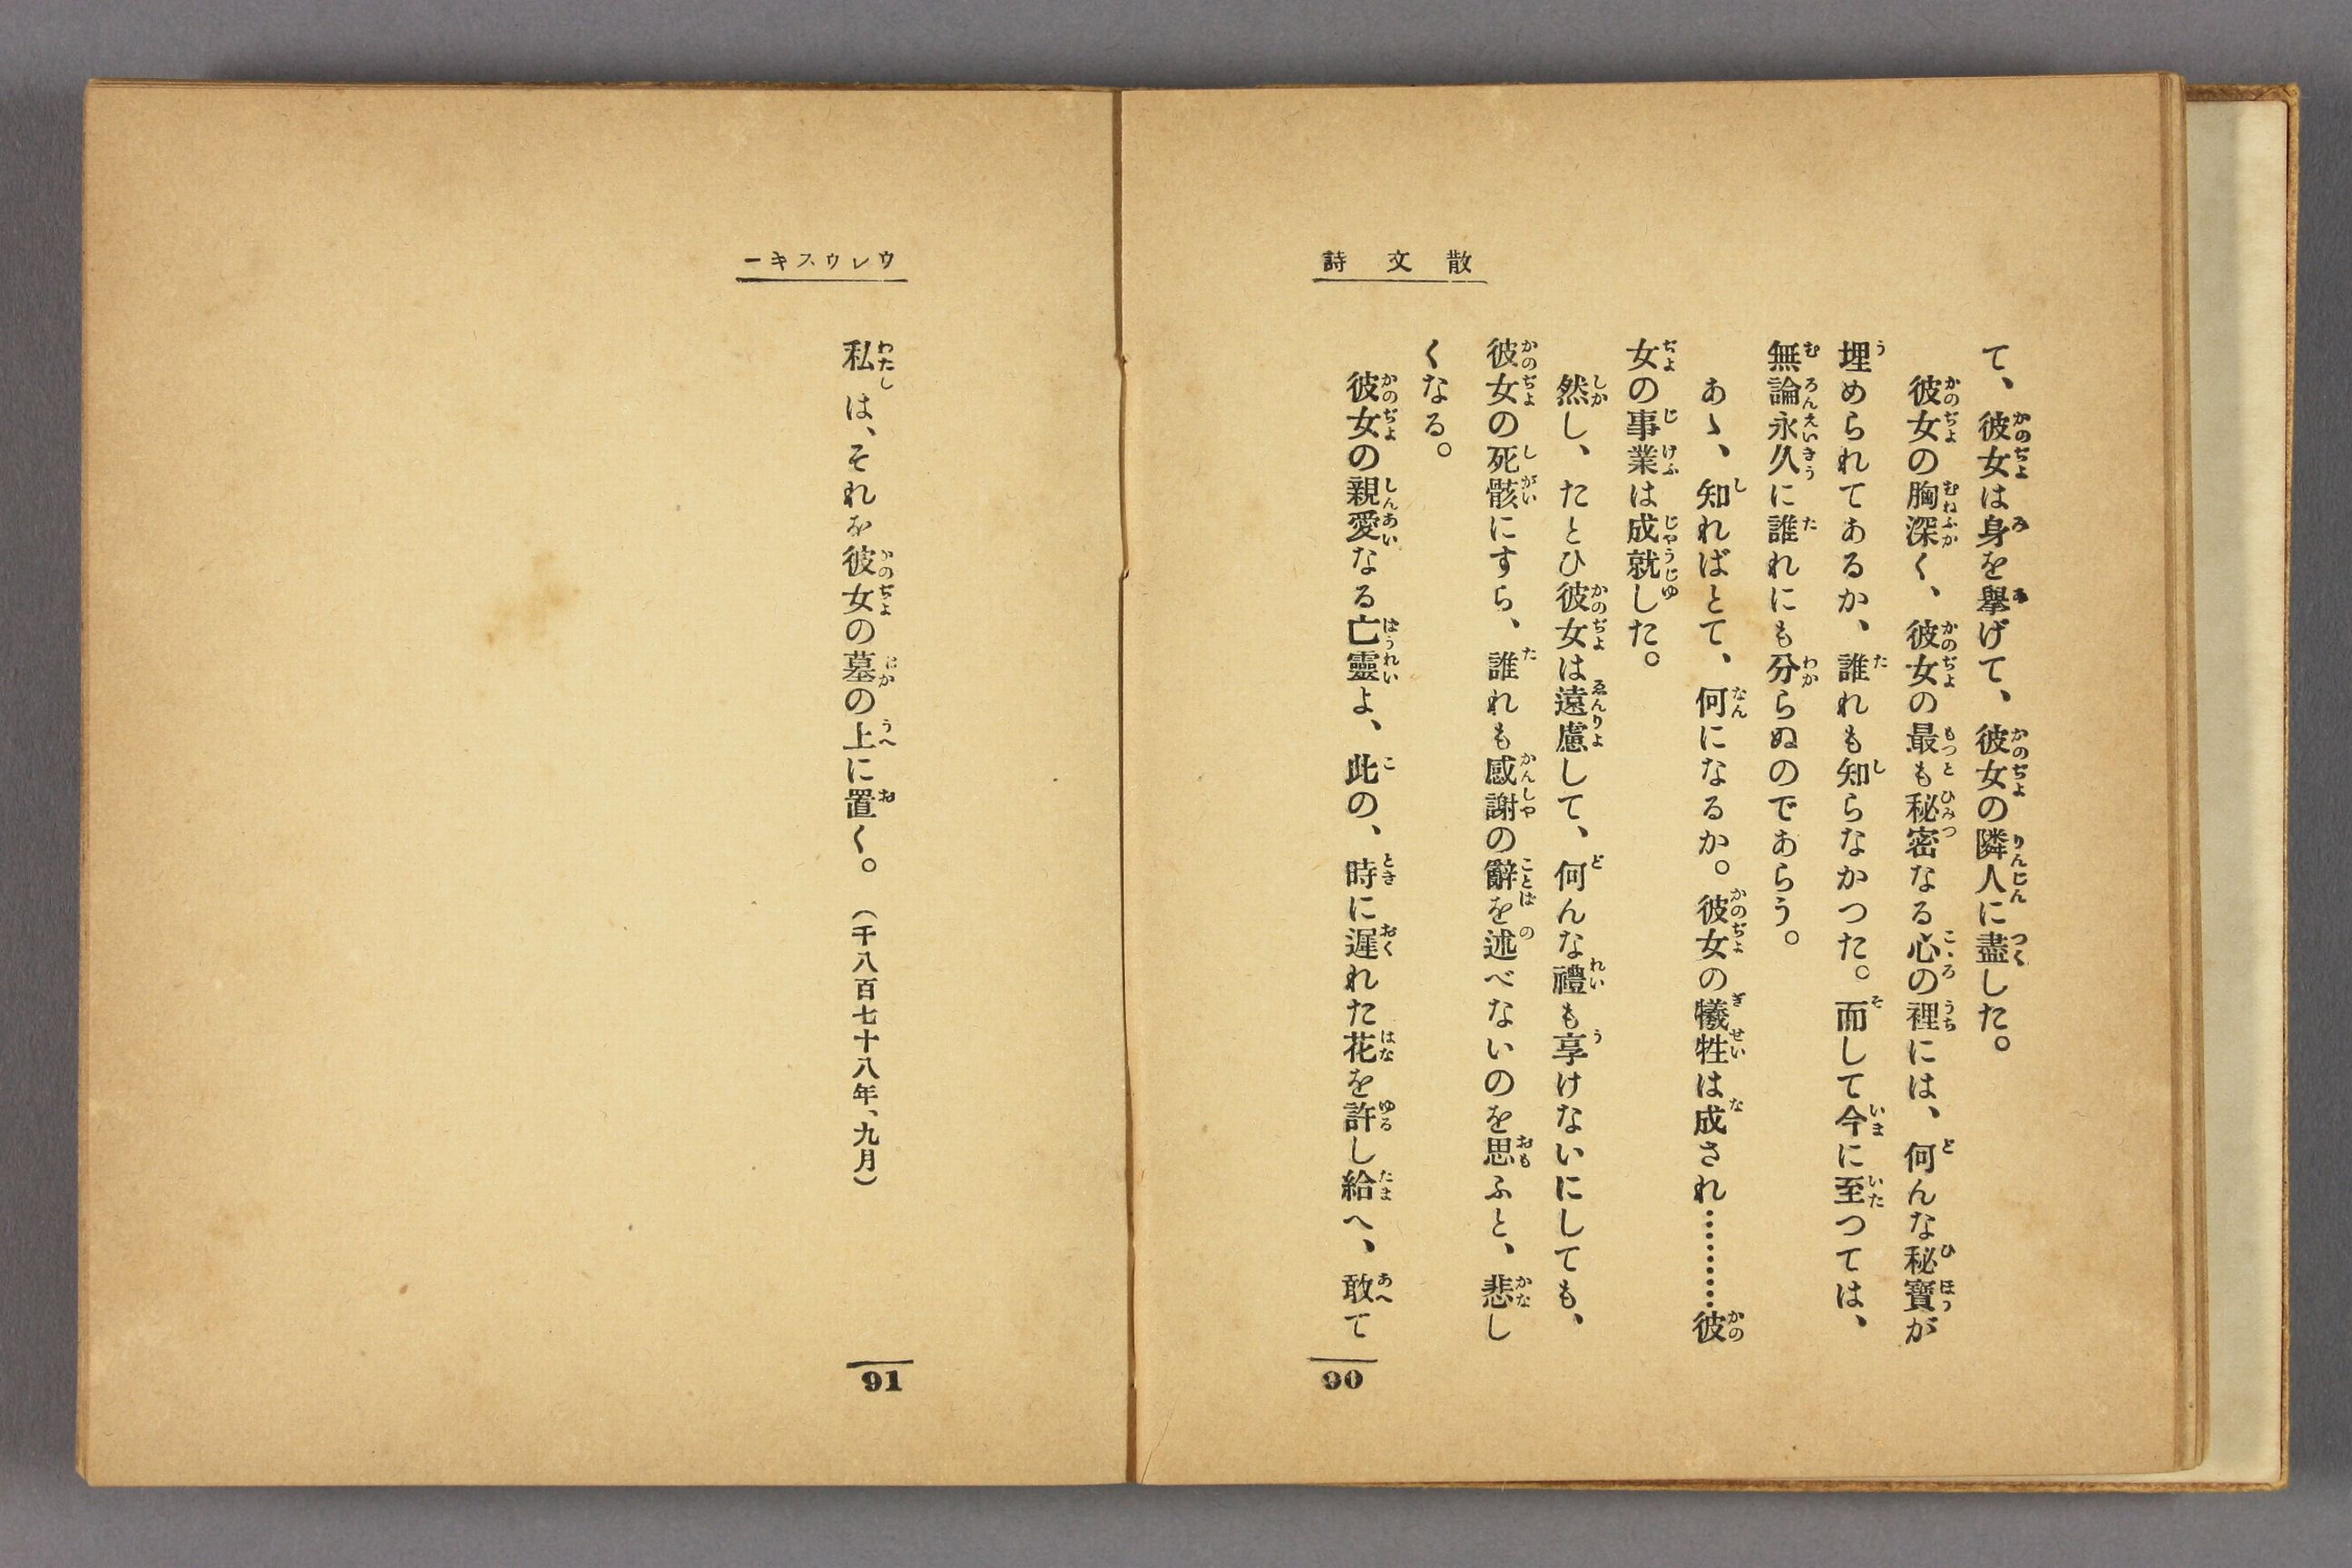 散文詩
て、彼女は身を擧げて、彼女の隣人に盡した。
彼女の胸深く、彼女の最も秘密なる心の裡には、何んな秘寶が
埋められてあるか、誰れも知らなかつた。而して今に至つては、
無論永久に誰れにも分らぬのであらう。
あゝ、知ればとて、何になるか。彼女の犧牲は成され…………彼
女の事業は成就した。
然し、たとひ彼女は遠慮して、何んな禮も享けないにしても、
彼女の死骸にすら、誰れも感謝の辭を述べないのを思ふと、悲し
くなる。
彼女の親愛なる亡靈よ、此の、時に遲れた花を許し給へ、敢て
90
ウレウスキー
私は、それを彼女の墓の上に置く。（千八百七十八年、九月）
91